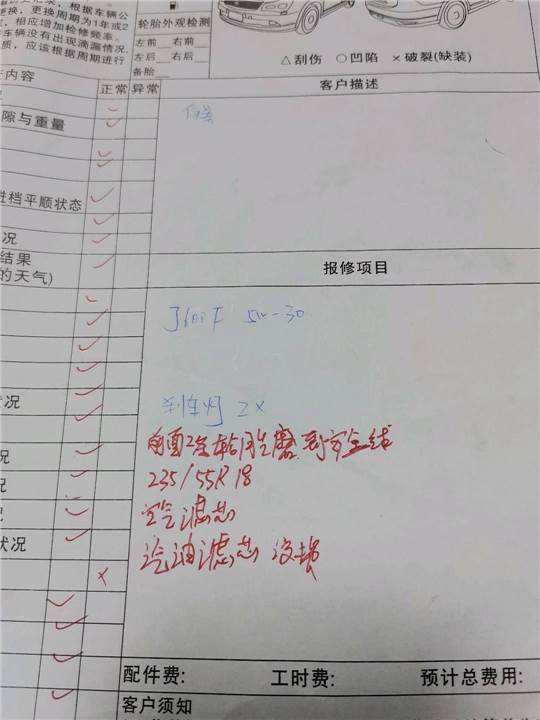 根据车辆公
更换，更换周期为1年或2
，相应增加检修频率。
车辆没有出现滴漏情况，
质，应该根据周期进行
轮胎外观检测
左前 右前
左后 右后
备胎
△刮伤 ○凹陷 ×破裂(缺装)
内容
正常 异常
客户描述
隙与重量
进档平顺状态
况
结果
的天气)
报修项目
5W-30
状况
刹车灯 2X
前面2条轮胎磨到安全线
况
235/55R 18
况
空气滤芯
况
状况
汽油滤芯 没换
×
配件费: 工时费: 预计总费用:
客户须知